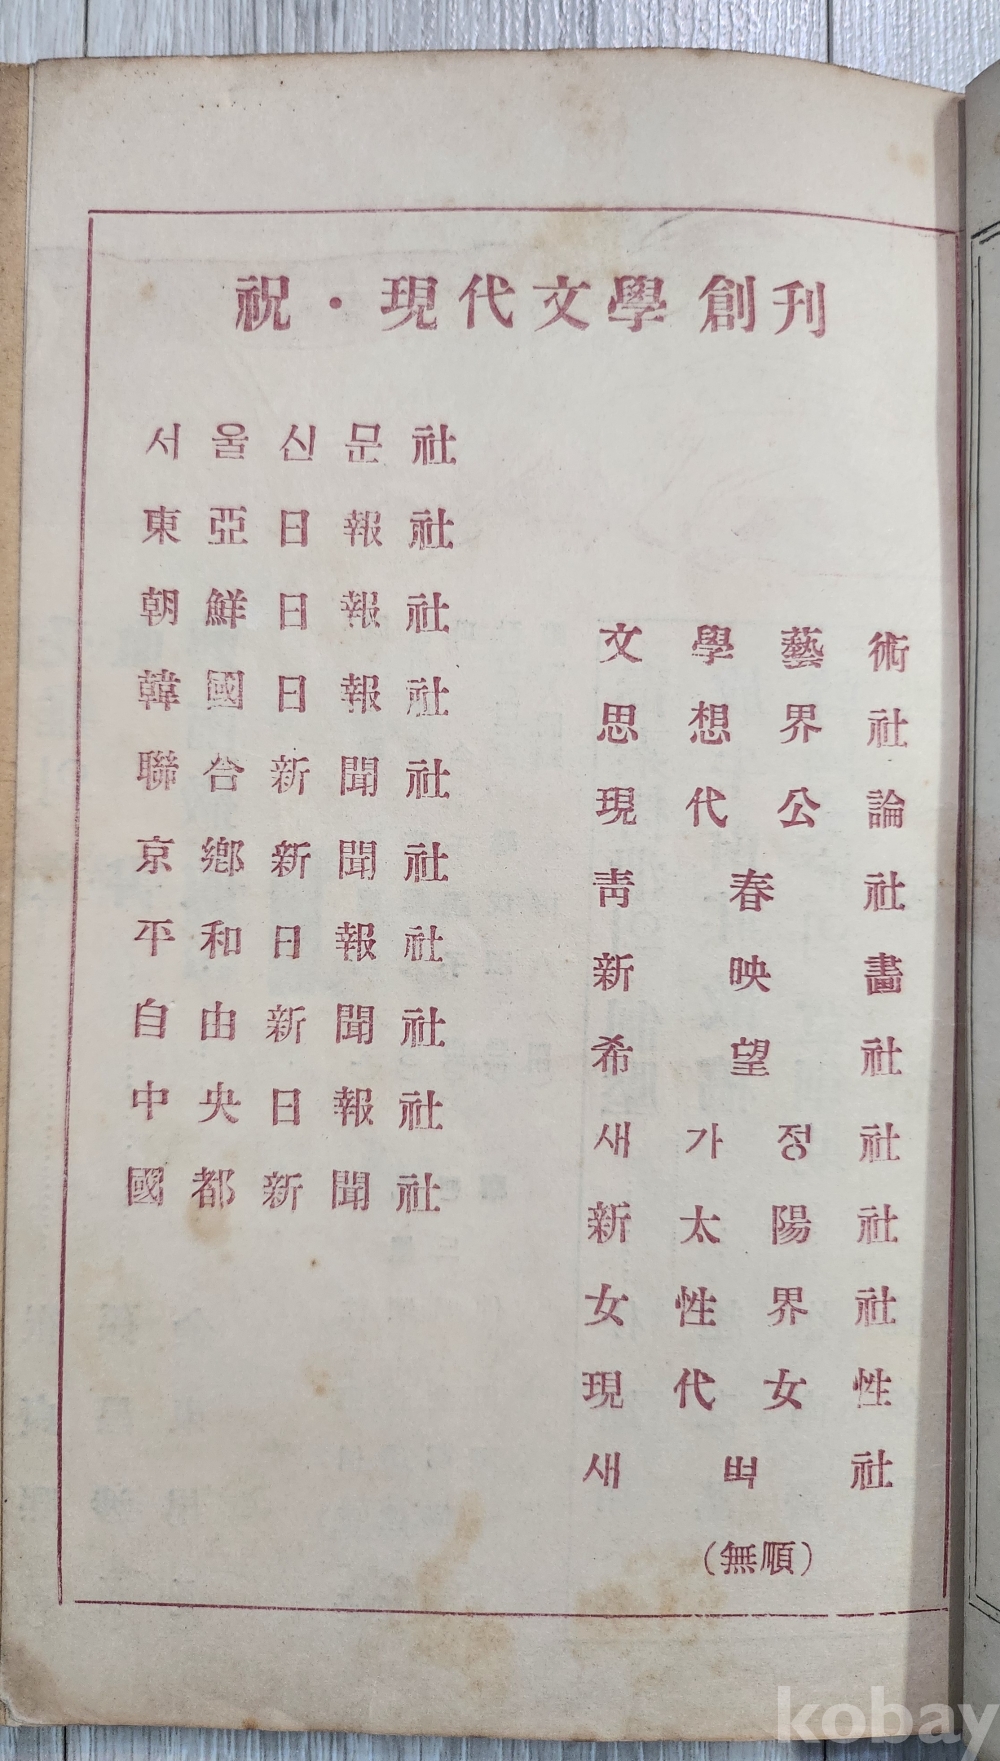 祝·現代文學 創刊
서울신문社
東亞日報社
朝鮮日報社
韓國日報社
聯合新聞社
京鄕新聞社
平和日報社
自由新聞社
中央日報社
國都新聞社
文學藝術
思想界社
現代公論
靑春社
新映畵
希望社
새가정社
新太陽社
女性界社
現代女性
새벽社
(無順)
kobay